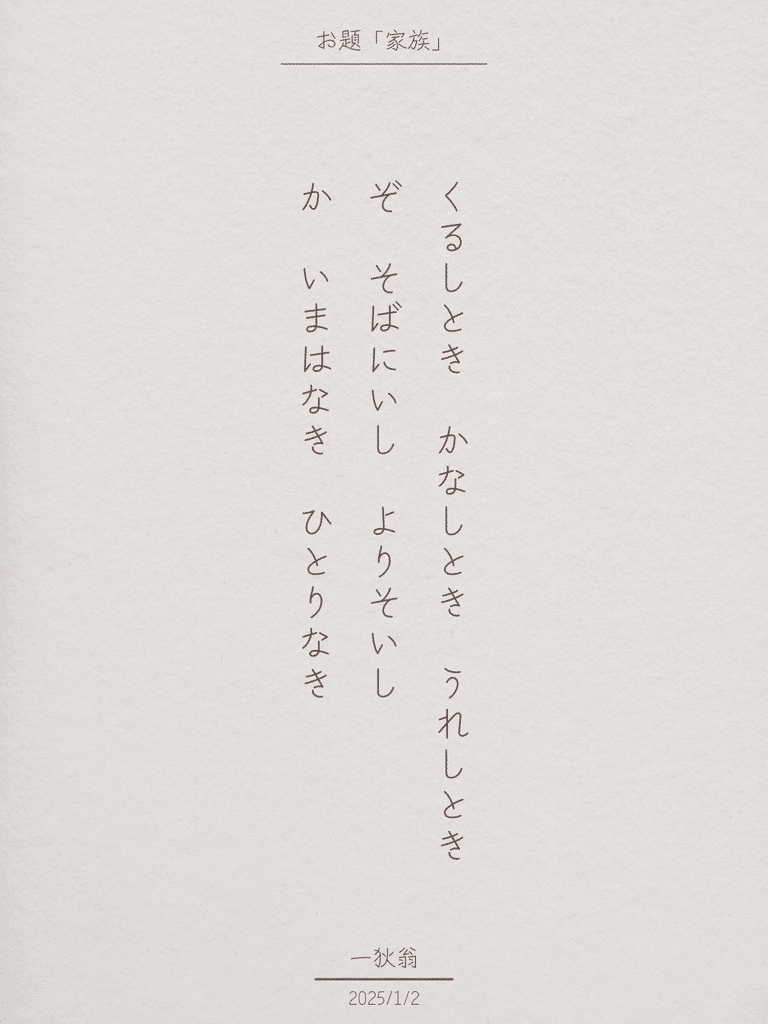 お題「家族」
くるしとき　かなしとき　うれしとき
ぞ　そばにいし　よりそいし
か　いまはなき　ひとりなき
一狄翁
2025/1/2